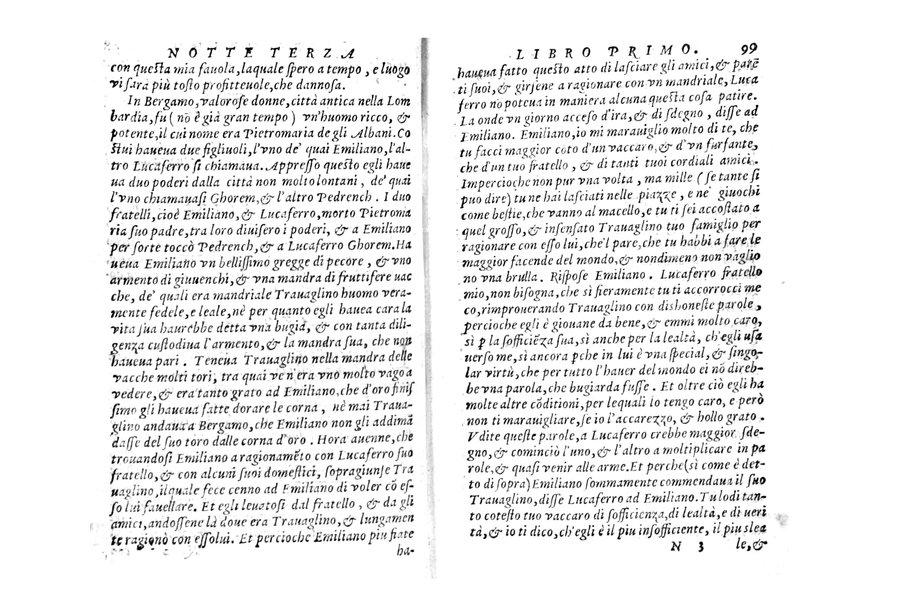 NOTTE TERZA
con questa mia fauola, laquale spero a tempo, e luogo
vi sarà più tosto profitteuole, che dannosa.
In Bergamo, valorose donne, città antica nella Lom
bardia, fu (nò è già gran tempo) vn'huomo ricco, &
potente, il cui nome era Pietromaria de gli Albani. Co
stui haueua due figliuoli, l'vno de' quai Emiliano, l'al-
tro Lucaferro si chiamaua. Appresso questo egli haue
ua duo poderi dalla città non molto lontani, de' quai
l'vno chiamauasi Ghorem, & l'altro Pedrench. I duo
fratelli, cioè Emiliano, & Lucaferro, morto Pietroma
ria suo padre, tra loro diuisero i poderi, & a Emiliano
per sorte toccò Pedrench, & a Lucaferro Ghorem. Ha
ueua Emiliano vn bellissimo gregge di pecore, & vno
armento di giuuenchi, & vna mandra di fruttifere vac
che, de' quali era mandriale Trauaglino huomo vera-
mente fedele, e leale, nè per quanto egli hauea cara la
vita sua haurebbe detta vna bugia, & con tanta dili-
genza custodiua l'armento, & la mandra sua, che non
haueua pari. Teneua Trauaglino nella mandra delle
vacche molti tori, tra quai ve n'era vno molto vago a
vedere, & era tanto grato ad Emiliano, che d'oro finis
simo gli haueua fatte dorare le corna, nè mai Traua-
glino andaua a Bergamo, che Emiliano non gli addimã
dasse del suo toro dalle corna d'oro. Hora auenne, che
trouandosi Emiliano a ragionamẽto con Lucaferro suo
fratello, & con alcuni suoi domestici, sopragiunse Tra
uaglino, ilquale fece cenno ad Emiliano di voler cõ es-
so lui fauellare. Et egli leuatosi dal fratello, & da gli
amici, andossene là doue era Trauaglino, & lungamen
te ragionò con esso lui. Et percioche Emiliano più fiate
ha-
LIBRO PRIMO. 99
haueua fatto questo atto di lasciare gli amici, & parẽ
ti suoi, & girsene a ragionare con vn mandriale, Luca
ferro nõ poteua in maniera alcuna questa cosa patire.
La onde vn giorno acceso d'ira, & di sdegno, disse ad
Emiliano. Emiliano, io mi marauiglio molto di te, che
tu facci maggior coto d'un vaccaro, & d'vn furfante,
che d'un tuo fratello, & di tanti tuoi cordiali amici.
Impercioche non pur vna volta, ma mille (se tante si
può dire) tu ne hai lasciati nelle piazze, e ne' giuochi
come bestie, che vanno al macello, e tu ti sei accostato a
quel grosso, & insensato Trauaglino tuo famiglio per
ragionare con esso lui, chè'l pare, che tu habbi a fare le
maggior facende del mondo, & nondimeno non vaglio
no vna brulla. Rispose Emiliano. Lucaferro fratello
mio, non bisogna, che sì fieramente tu ti accorrocci me
co, rimprouerando Trauaglino con dishoneste parole,
percioche egli è giouane da bene, & emmi molto caro,
sì p la sofficiẽza sua, sì anche per la lealtà, ch'egli usa
uerso me, sì ancora pche in lui è vna special, & singo-
lar virtù, che per tutto l'hauer del mondo ei nõ direb-
be vna parola, che bugiarda fusse. Et oltre ciò egli ha
molte altre cõditioni, per lequali io tengo caro, e però
non ti marauigliare, se io l'accarezzo, & hollo grato.
Vdite queste parole, a Lucaferro crebbe maggior sde-
gno, & cominciò l'uno, & l'altro a moltiplicare in pa
role, & quasi venir alle arme. Et perche (sì come è det-
to di sopra) Emiliano sommamente commendaua il suo
Trauaglino, disse Lucaferro ad Emiliano. Tu lodi tan-
to cotesto tuo vaccaro di sofficienza, di lealtà, e di ueri
tà, & io ti dico, ch'egli è il piu insofficiente, il piu slea
N 3 le, &